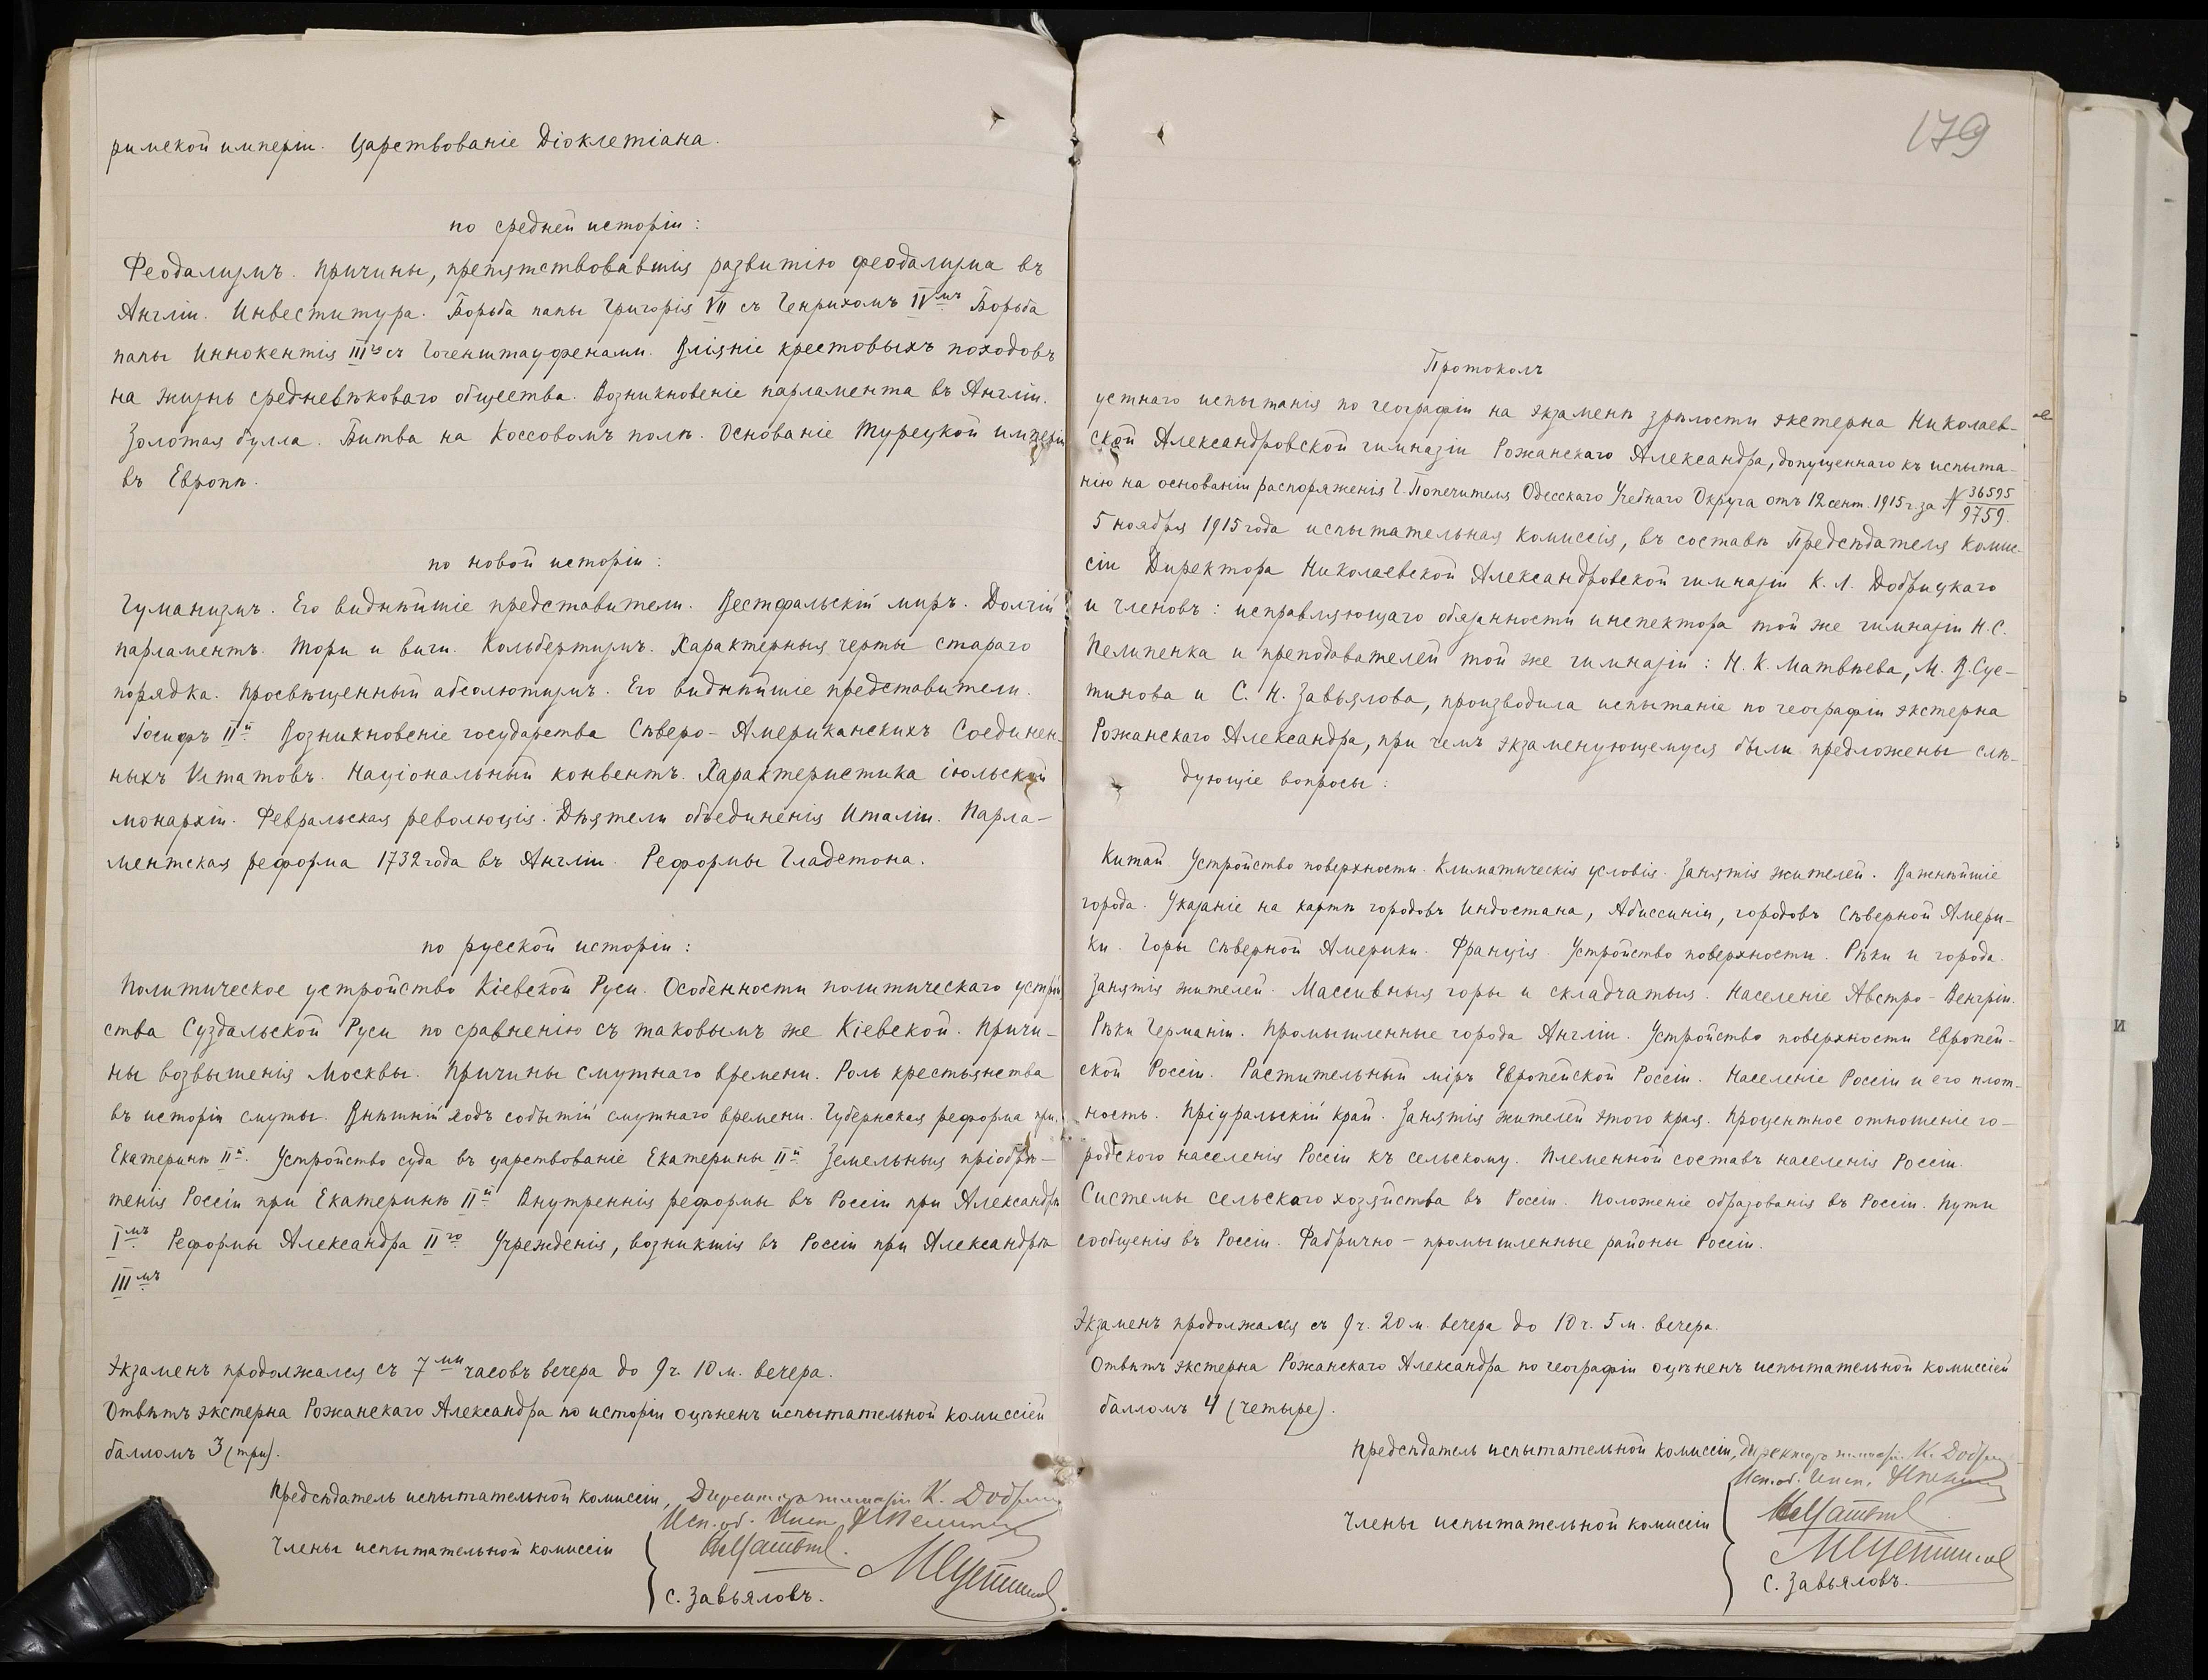 римской имперіи. Царствованіе Діоклетіана.
по средней исторіи:
Феодализмъ. Причины, препятствовавшія развитію феодализма въ
Англіи. Инвеститура. Борьба папы Григорія VII съ Генрихомъ IVмъ Борьба
папы Иннокентія IIIго съ Гогенштауфенами. Вліяніе крестовыхъ походовъ
на жизнь средневѣковаго общества. Возникновеніе парламента въ Англіи.
Золотая булла. Битва на Коссовомъ полѣ. Основаніе Турецкой имперіи
въ Европѣ.
по новой исторіи:
Гуманизмъ. Его виднѣйшіе представители. Вестфальскій миръ. Долгій
парламентъ. Тори и виги. Кольбертизмъ. Характерныя черты стараго
порядка. Просвѣщенный абсолютизмъ. Его виднѣйшіе представители.
Іосифъ IIй Возникновеніе государства Сѣверо-Американскихъ Соединен-
ныхъ Штатовъ. Національный конвентъ. Характеристика іюльской
монархіи. Февральская революція. Дѣятели объединенія Италіи. Парла-
ментская реформа 1732 года въ Англіи. Реформы Гладстона.
по русской исторіи:
Политическое устройство Кіевской Руси. Особенности политическаго устрой
ства Суздальской Руси по сравненію съ таковымъ же Кіевской. Причи-
ны возвышенія Москвы. Причины смутнаго времени. Роль крестьянства
въ исторіи смуты. Внѣшній ходъ событій смутнаго времени. Губернская реформа при
Екатеринѣ IIй. Устройство суда въ царствованіе Екатерины IIй Земельныя пріобрѣ-
тенія Россіи при Екатеринѣ IIй Внутреннія реформы въ Россіи при Александрѣ
Iмъ. Реформы Александра IIго Учрежденія, возникшія въ Россіи при Александрѣ
IIIмъ
Экзаменъ продолжался съ 7ми часовъ вечера до 9 ч. 10 м. вечера.
Отвѣтъ экстерна Рожанскаго Александра по исторіи оцѣненъ испытательной комиссіей
балломъ 3 (три).
Предсѣдатель испытательной комиссіи, Директоръ гимназіи К. Добриц
Исп. об. Инсп.
Члены испытательной комиссіи
С. Завьяловъ.
179
Протоколъ
устнаго испытанія по географіи на экзаменѣ зрѣлости экстерна Николаев-
ской Александровской гимназіи Рожанскаго Александра, допущеннаго къ испыта-
нію на основаніи распоряженія Г. Попечителя Одесскаго Учебнаго Округа отъ 12 сент. 1915 г. за N 36595/9759.
5 ноября 1915 года испытательная комиссія, въ составѣ Предсѣдателя комис-
сіи Директора Николаевской Александровской гимназіи К. Л. Добрицкаго
и членовъ: исправляющаго обязанности инспектора той же гимназіи Н. С.
Пелипенка и преподавателей той же гимназіи: Н. К. Матвѣева, М. В. Сус-
тинова и С. Н. Завьялова, производила испытаніе по географіи экстерна
Рожанскаго Александра, при чемъ экзаменующемуся были предложены слѣ-
дующіе вопросы:
Китай. Устройство поверхности. Климатическія условія. Занятія жителей. Важнѣйшіе
города. Указаніе на картѣ городовъ Индостана, Абиссиніи, городовъ Сѣверной Амери-
ки. Горы Сѣверной Америки. Франція. Устройство поверхности. Рѣки и города.
Занятія жителей. Массивныя горы и складчатыя. Населеніе Австро-Венгріи.
Рѣки Германіи. Промышленные города Англіи. Устройство поверхности Европей-
ской Россіи. Растительный міръ Европейской Россіи. Населеніе Россіи и его плот-
ность. Пріуральскій край. Занятія жителей этого края. Процентное отношеніе го-
родского населенія Россіи къ сельскому. Племенной составъ населенія Россіи.
Системы сельскаго хозяйства въ Россіи. Положеніе образованія въ Россіи. Пути
сообщенія въ Россіи. Фабрично-промышленные районы Россіи.
Экзаменъ продолжался съ 9 ч. 20 м. вечера до 10 ч. 5 м. вечера.
Отвѣтъ экстерна Рожанскаго Александра по географіи оцѣненъ испытательной комиссіей
балломъ 4 (четыре).
Предсѣдатель испытательной комиссіи, Директоръ гимназіи К. Добриц
Исп. об. Инсп.
Члены испытательной комиссіи
С. Завьяловъ.